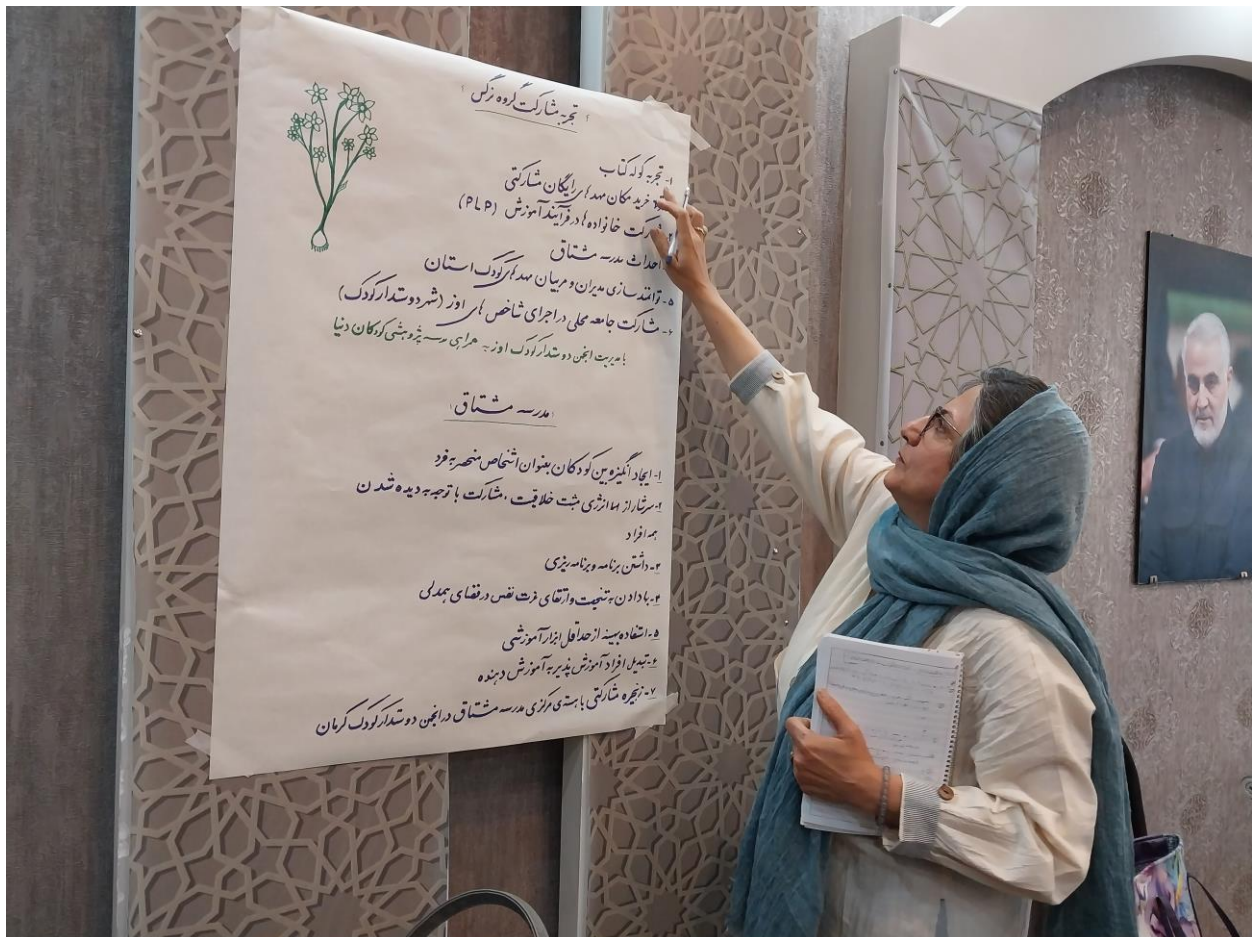 تجربه مشارکت گروه نرگس
۱- تجربه کوله کتاب
خرید مکان مهدهای رایگان مشارکتی
خانواده ها در فرآیند آموزش (PLP)
احداث مدرسه مشتاق
۵- توانمندسازی مدیران و مربیان مهدهای کودک استان
۶- مشارکت جامعه محلی در اجرای شاخص های اوز (شهر دوستدار کودک)
با مدیریت انجمن دوستدار کودک اوز به همراهی مدرسه پژوهشی کودکان دنیا
مدرسه مشتاق
۱- ایجاد انگیزه بین کودکان بعنوان اشخاص منحصر به فرد
۲- سرشار از انرژی مثبت خلاقیت، مشارکت با توجه به دیده شدن
همه افراد
۳- داشتن برنامه و برنامه ریزی
۴- بها دادن به شخصیت و ارتقای عزت نفس در فضای همدلی
۵- استفاده بهینه از حداقل ابزار آموزشی
۶- تبدیل افراد آموزش پذیر به آموزش دهنده
۷- زنجیره مشارکتی با هسته ی مرکزی مدرسه مشتاق در انجمن دوستدار کودک کرمان